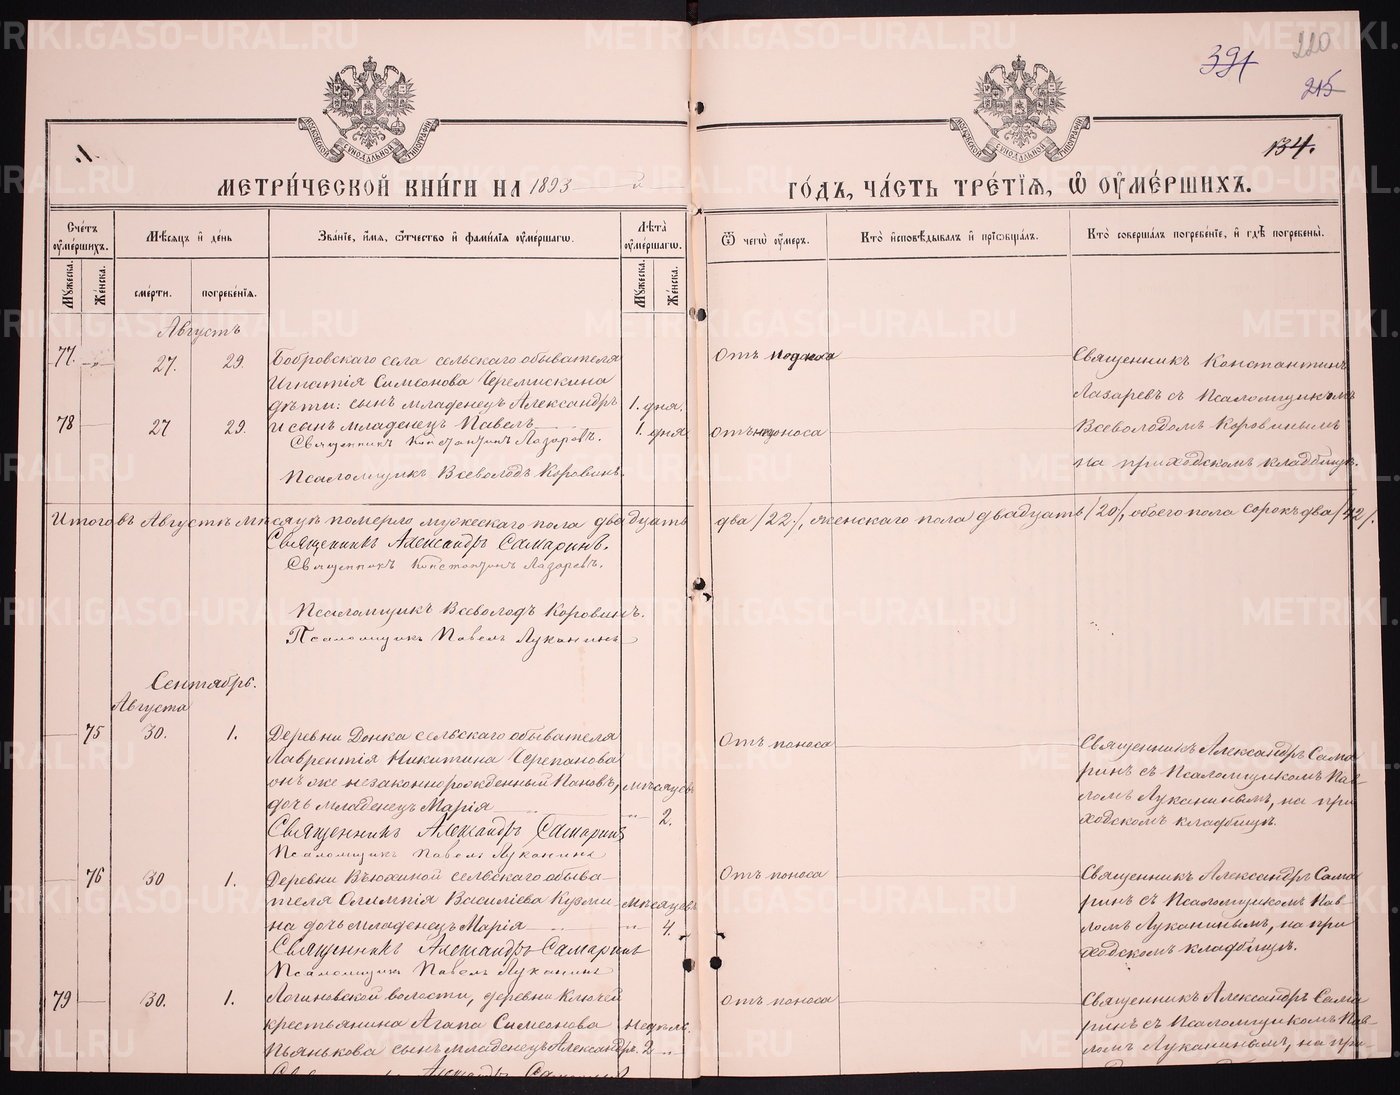 391
220
215
134.
МЕТРИ́ЧЕСКОЙ КНИ́ГИ НА 1893 й
ГО́ДЪ, ЧА́СТЬ ТРЕ́ТІѦ, Ѽ ОУ҆МЕ́РШИХЪ.
Сче́тъ оу҆ме́ршихъ.
Мѣ́сѧцъ и҆ де́нь
Зва́ніе, и҆́мѧ, ѻ҆́тчество и҆ фами́лїѧ оу҆ме́ршагѡ.
Лѣ́та оу҆ме́ршагѡ.
Ѿ чегѡ̀ оу҆́меръ.
Кто̀ и҆сповѣ́дывалъ и҆ прїѡбща́лъ.
Кто̀ соверша́лъ погребе́нїе, и҆ гдѣ̀ погребены̀.
Мꙋ́жеска.
Же́нска.
сме́рти.
погребе́нїѧ.
Мꙋ́жеска.
Же́нска.
Августъ
77. 27. 29. Бобровскаго села сельскаго обывателя
Игнатія Симеонова Черемискина
дѣти: сынъ младенецъ Александръ 1. дня.
Отъ поноса
Священникъ Константинъ
Лазаревъ съ Псаломщикомъ
78 27 29. и сынъ младенецъ Павелъ 1. дня
Отъ поноса
Всеволодомъ Коровинымъ
на приходскомъ кладбищѣ.
Священникъ Константинъ Лазаревъ.
Псаломщикъ Всеволодъ Коровинъ.
Итого въ Августѣ мѣсяцѣ померло мужескаго пола двадцать два /22/, женскаго пола двадцать /20/, обоего пола сорокъ два /42/.
Священникъ Александръ Самаринъ.
Священникъ Константинъ Лазаревъ.
Псаломщикъ Всеволодъ Коровинъ.
Псаломщикъ Павелъ Луканинъ
Сентябрь.
Августа
75 30. 1. Деревни Донка сельскаго обывателя
Лаврентія Никитина Черепанова
онъ же незаконнорожденный Пановъ, мѣсяцевъ
дочь младенецъ Марія 2.
Священникъ Александръ Самаринъ
Псаломщикъ Павелъ Луканинъ
Отъ поноса
Священникъ Александръ Сама
ринъ съ Псаломщикомъ Пав-
ломъ Луканинымъ, на при
ходскомъ кладбищѣ.
76 30 1. Деревни Вьюхиной сельскаго обыва-
теля Олимпія Василіева Кузми- мѣсяцевъ
на дочь младенецъ Марія 4.
Священникъ Александръ Самаринъ
Псаломщикъ Павелъ Луканинъ
Отъ поноса
Священникъ Александръ Сама
ринъ съ Псаломщикомъ Пав-
ломъ Луканинымъ, на при
ходскомъ кладбищѣ.
79 30. 1. Логиновской волости, деревни Ключей
крестьянина Агапа Симеонова недѣль.
Пьянькова сынъ младенецъ Александръ. 2
Отъ поноса
Священникъ Александръ Сама
ринъ съ Псаломщикомъ Пав-
ломъ Луканинымъ, на при-
METRIKI.GASO-URAL.RU